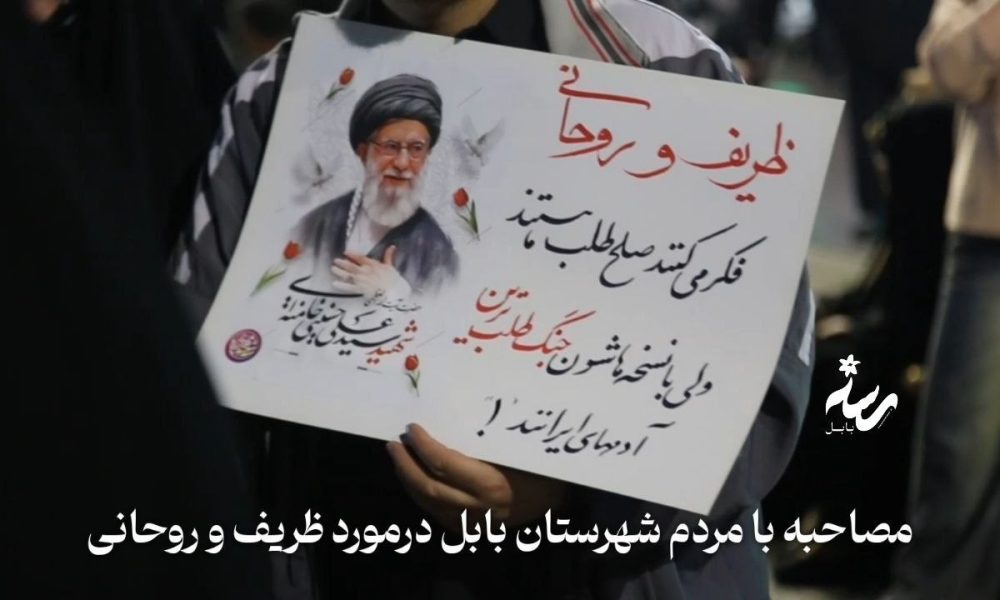 ظریف و روحانی
فکر می‌کنند صلح طلب ها هستند
ولی با نسخه هاشون جنگ طلب ترین
آدمهای ایرانند !
شهید سیدعلی حسینی خامنه‌ای
رسانه
بابل
مصاحبه با مردم شهرستان بابل درمورد ظریف و روحانی